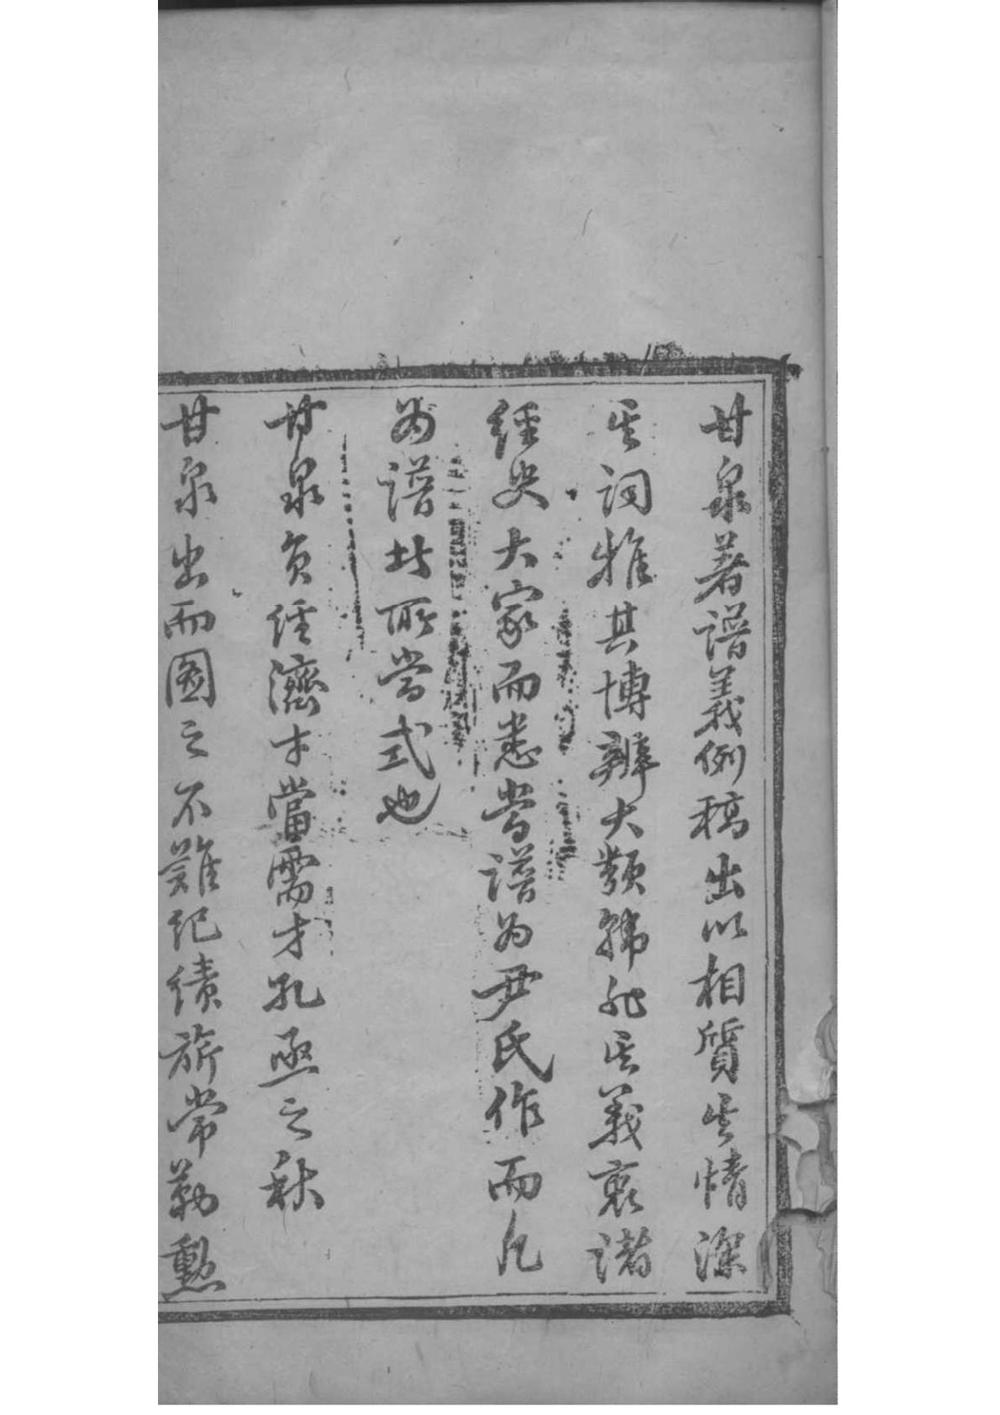 甘泉著譜義例稿出以相質其情深
其詞雅其博辨大類韓非其義衷諸
經史大家而悉當譜為尹氏作而凡
為譜者所當式也
甘泉負經濟才當需才孔亟之秋
甘泉出而圖之不難紀績旂常勒勳